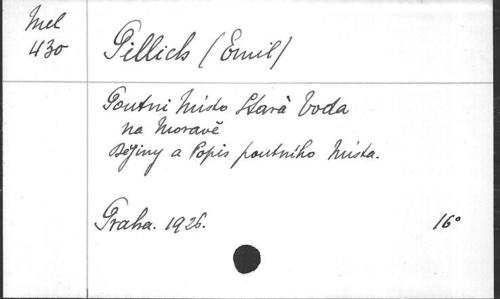 Mel
430
Pillich (Emil)
Poutni Misto Stará Voda
na Moravě
Dějiny a Popis poutního Mista.
Praha. 1926. 16°